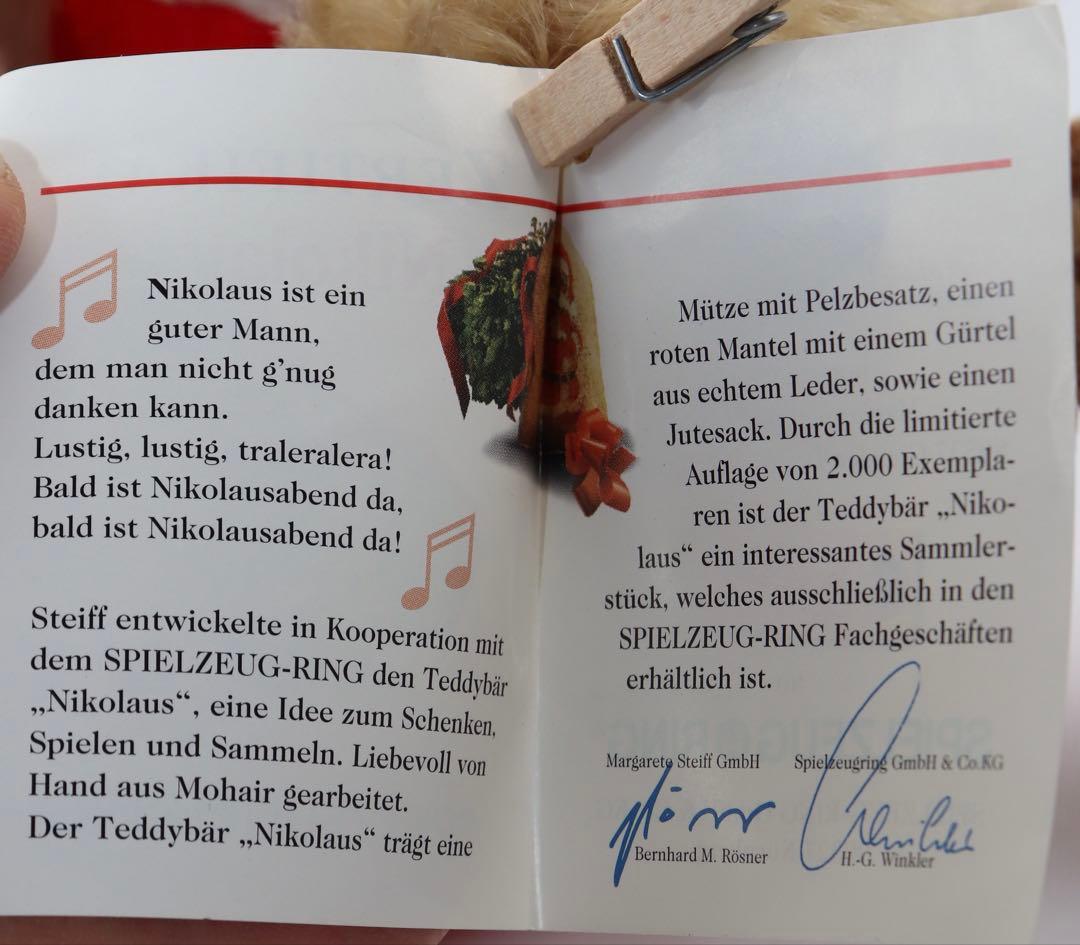 Nikolaus ist ein
guter Mann,
dem man nicht g'nug
danken kann.
Lustig, lustig, traleralera!
Bald ist Nikolausabend da,
bald ist Nikolausabend da!
Steiff entwickelte in Kooperation mit
dem SPIELZEUG-RING den Teddybär
„Nikolaus“, eine Idee zum Schenken,
Spielen und Sammeln. Liebevoll von
Hand aus Mohair gearbeitet.
Der Teddybär „Nikolaus“ trägt eine
Mütze mit Pelzbesatz, einen
roten Mantel mit einem Gürtel
aus echtem Leder, sowie einen
Jutesack. Durch die limitierte
Auflage von 2.000 Exempla-
ren ist der Teddybär „Niko-
laus“ ein interessantes Sammler-
stück, welches ausschließlich in den
SPIELZEUG-RING Fachgeschäften
erhältlich ist.
Margarete Steiff GmbH
Bernhard M. Rösner
Spielzeugring GmbH & Co.KG
H.-G. Winkler